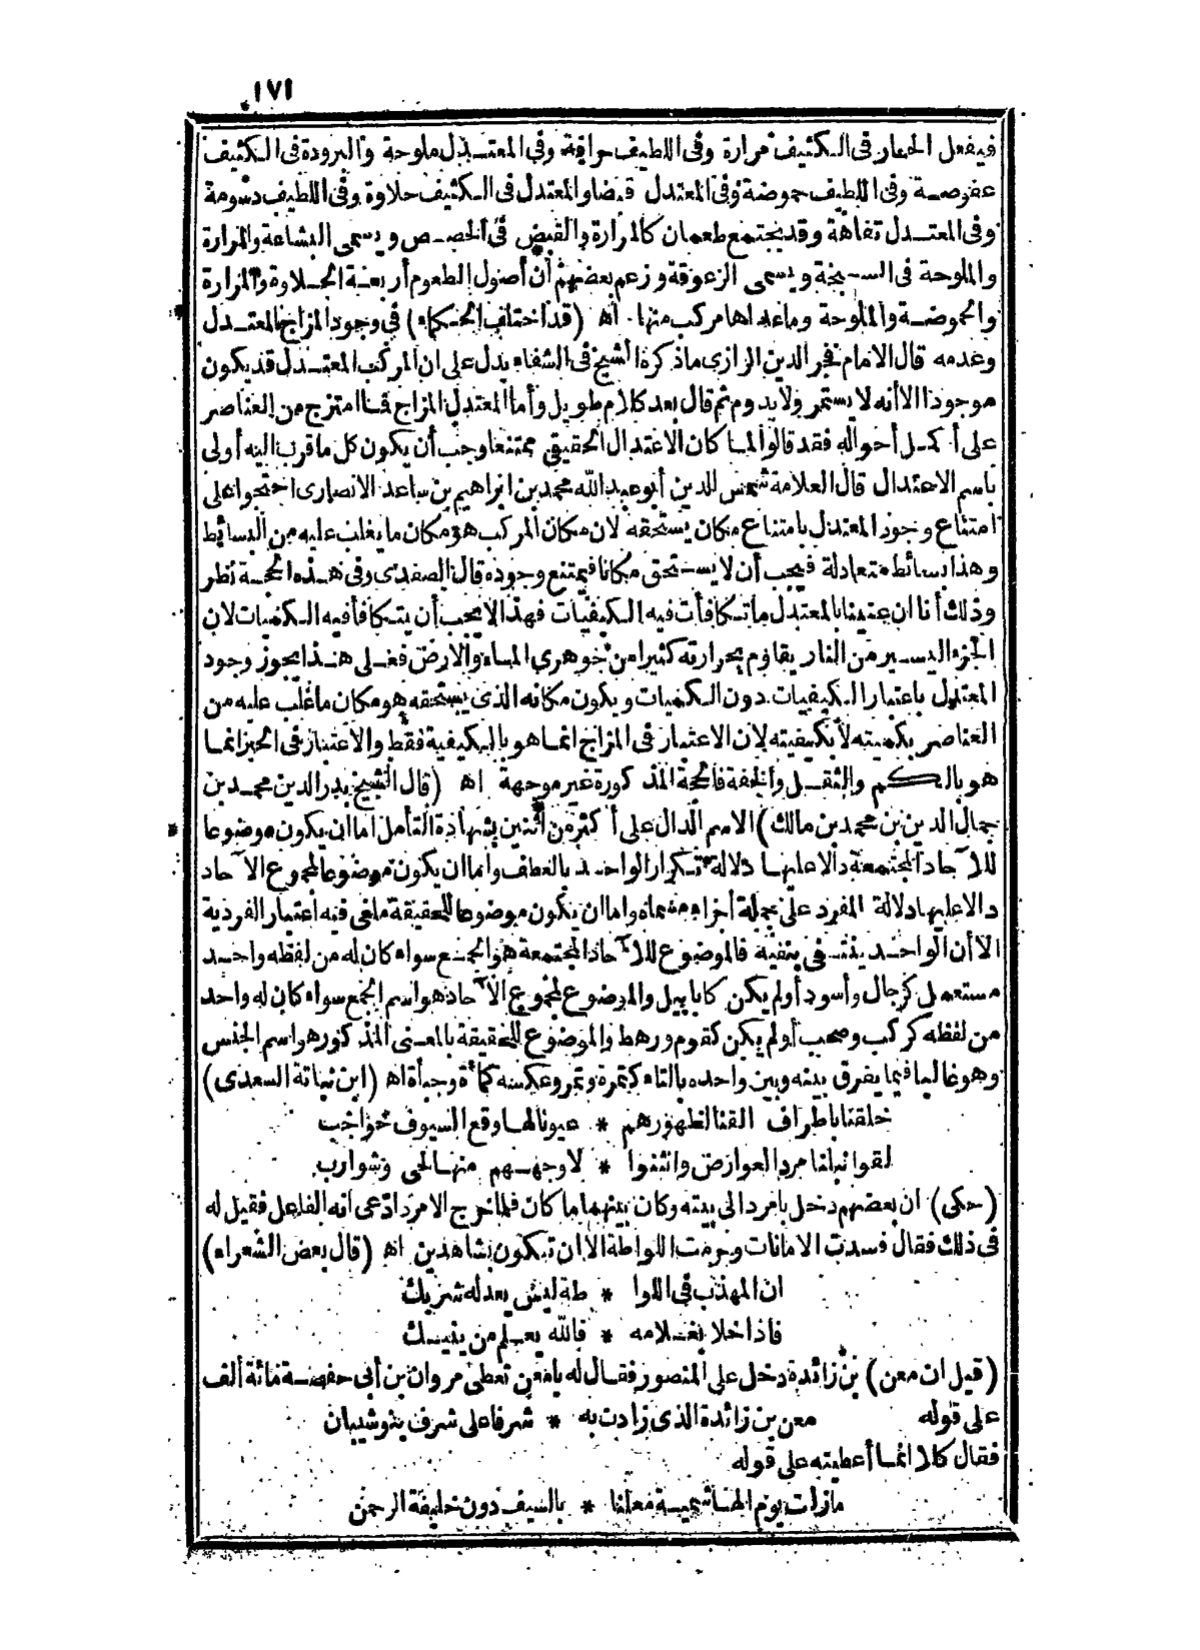 ١٧١
فيفعل الحار فى الكثيف مرارة وفى اللطيف حرافة وفى المعتدل ملوحة والبرودة فى الكثيف
عفوصة وفى اللطيف حموضة وفى المعتدل قبضا والمعتدل فى الكثيف حلاوة وفى اللطيف دسومة
وفى المعتدل تفاهة وقد يجتمع طعمان كالمرارة والقبض فى الحضض ويسمى البشاعة والمرارة
والملوحة فى السبخة ويسمى الزعوقة وزعم بعضهم أن أصول الطعوم أربعة الحلاوة والمرارة
والحموضة والملوحة وماعداها مركب منها. اه (قد اختلف الحكماء) فى وجود المزاج المعتدل
وعدمه قال الامام فخر الدين الرازى ماذكره الشيخ فى الشفاء يدل على ان المركب المعتدل قد يكون
موجودا الا أنه لا يستمر ولا يدوم ثم قال بعد كلام طويل وأما المعتدل المزاج فما امتزج من العناصر
على أكمل أحواله فقد قالوا لما كان الاعتدال الحقيقى ممتنعا وجب أن يكون كل ما قرب اليه أولى
باسم الاعتدال قال العلامة شمس الدين أبو عبد الله محمد بن ابراهيم بن ساعد الانصارى احتجوا على
امتناع وجود المعتدل بامتناع مكان يستحقه لان مكان المركب هو مكان ما يغلب عليه من البسائط
وهذا بسائطه متعادلة فيجب أن لا يستحق مكانا فيمتنع وجوده قال الصفدى وفى هذه الحجة نظر
وذلك أنا ان عنينا بالمعتدل ما تكافأت فيه الكيفيات فهذا لا يجب أن يتكافأ فيه الكميات لان
الجزء اليسير من النار يقاوم بحرارته كثيرا من جوهرى الماء والارض فعلى هذا يجوز وجود
المعتدل باعتبار الكيفيات دون الكميات ويكون مكانه الذى يستحقه هو مكان ما غلب عليه من
العناصر بكميته لا بكيفيته لان الاعتبار فى المزاج انما هو بالكيفية فقط والاعتبار فى الحيز انما
هو بالكم والثقل والخفة فالحجة المذكورة غير موجهة اه (قال الشيخ بدر الدين محمد بن
جمال الدين بن محمد بن مالك) الاسم الدال على أكثر من اثنين بشهادة التأمل اما ان يكون موضوعا
للآحاد المجتمعة دالا عليها دلالة تكرار الواحد بالعطف واما ان يكون موضوعا لمجموع الآحاد
دالا عليها دلالة المفرد على جملة أجزاء مسماه واما ان يكون موضوعا للحقيقة ملغى فيه اعتبار الفردية
الا أن الواحد ينتفى بنفيه فالموضوع للآحاد المجتمعة هو الجمع سواء كان له من لفظه واحد
مستعمل كرجال وأسود أو لم يكن كابابيل والموضوع لمجموع الآحاد هو اسم الجمع سواء كان له واحد
من لفظه كركب وصحب أو لم يكن كقوم ورهط والموضوع للحقيقة بالمعنى المذكور هو اسم الجنس
وهو غالبا فيما يفرق بينه وبين واحده بالتاء كتمرة وتمر وعكسه كمأة وجبأة اه (ابن نباتة السعدى)
خلقنا باطراف القنا لظهورهم * عيونا لها وقع السيوف حواجب
لقوا نبلنا مرد العوارض وانثنوا * لاوجههم منها لحى وشوارب
(حكى) ان بعضهم دخل بامرد الى بيته وكان بينهما ما كان فلما خرج الامرد ادعى انه الفاعل فقيل له
فى ذلك فقال فسدت الامانات وحرمت اللواطة الا ان تكون بشاهدين اه (قال بعض الشعراء)
ان المهذب فى اللوا * طة ليس يعدله شريك
فاذا خلا بغلامه * فالله يعلم من ينيك
(قيل ان معن) بن زائدة دخل على المنصور فقال له يا معن تعطى مروان بن أبى حفصة مائة ألف
على قوله معن بن زائدة الذى زادت به * شرفا على شرف بنو شيبان
فقال كلا انما أعطيته على قوله
مازلت يوم الهاشمية معلنا * بالسيف دون خليفة الرحمن